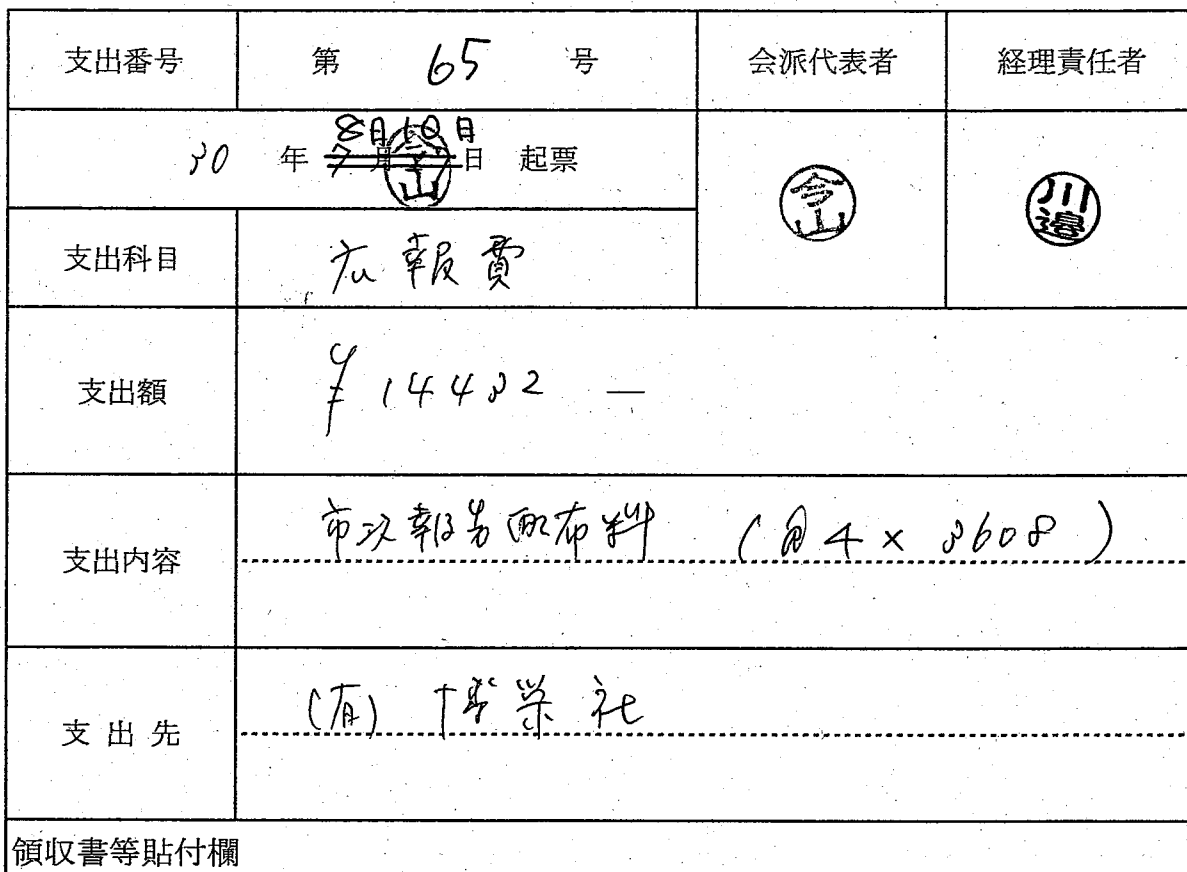 支出番号 第 65 号 会派代表者 経理責任者
8月10日
30 年 7月 日 起票
今山
今山
川邉
支出科目 広報費
支出額 ¥14432 —
支出内容 市政報告配布料 (@4×3608)
支出先 (有) 博栄社
領収書等貼付欄